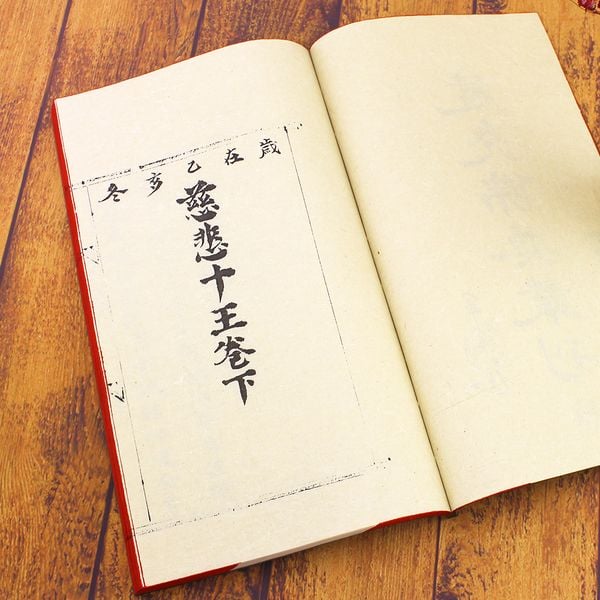 歲在乙亥冬
慈悲十王卷下